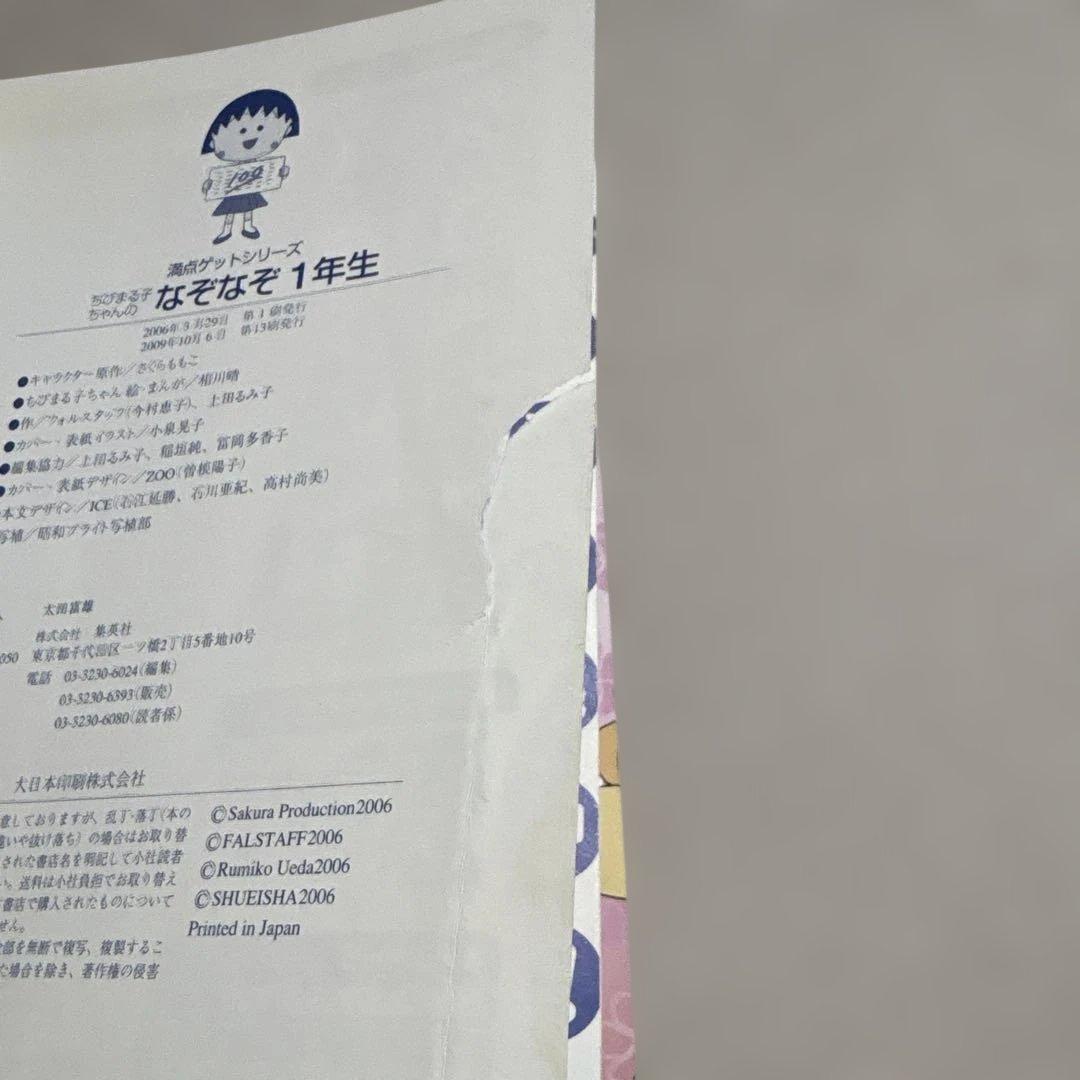 100
満点ゲットシリーズ
ちびまる子ちゃんの なぞなぞ1年生
2006年3月29日 第1刷発行
2009年10月6日 第13刷発行
●キャラクター原作/さくらももこ
●ちびまる子ちゃん 絵・まんが/相川晴
●作/フォルスタッフ(今村恵子)、上田るみ子
●カバー・表紙イラスト/小泉晃子
●編集協力/上田るみ子、稲垣純、富岡多香子
●カバー・表紙デザイン/ZOO(曽根陽子)
本文デザイン/ICE(石江延勝、石川亜紀、高村尚美)
写植/昭和ブライト写植部
太田富雄
株式会社 集英社
050 東京都千代田区一ツ橋2丁目5番地10号
電話 03-3230-6024(編集)
03-3230-6393(販売)
03-3230-6080(読者係)
大日本印刷株式会社
意しておりますが、乱丁・落丁(本の
違いや抜け落ち)の場合はお取り替
された書店名を明記して小社読者
い。送料は小社負担でお取り替え
書店で購入されたものについて
せん。
全部を無断で複写、複製するこ
た場合を除き、著作権の侵害
©Sakura Production2006
©FALSTAFF2006
©Rumiko Ueda2006
©SHUEISHA2006
Printed in Japan